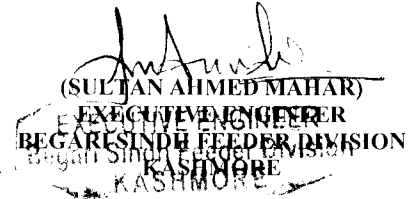 (SULTAN AHMED MAHAR)
EXECUTIVE ENGINEER
BEGARI SINDH FEEDER DIVISION
KASHMORE
EXECUTIVE ENGINEER
Begari Sindh Feeder Division
KASHMORE